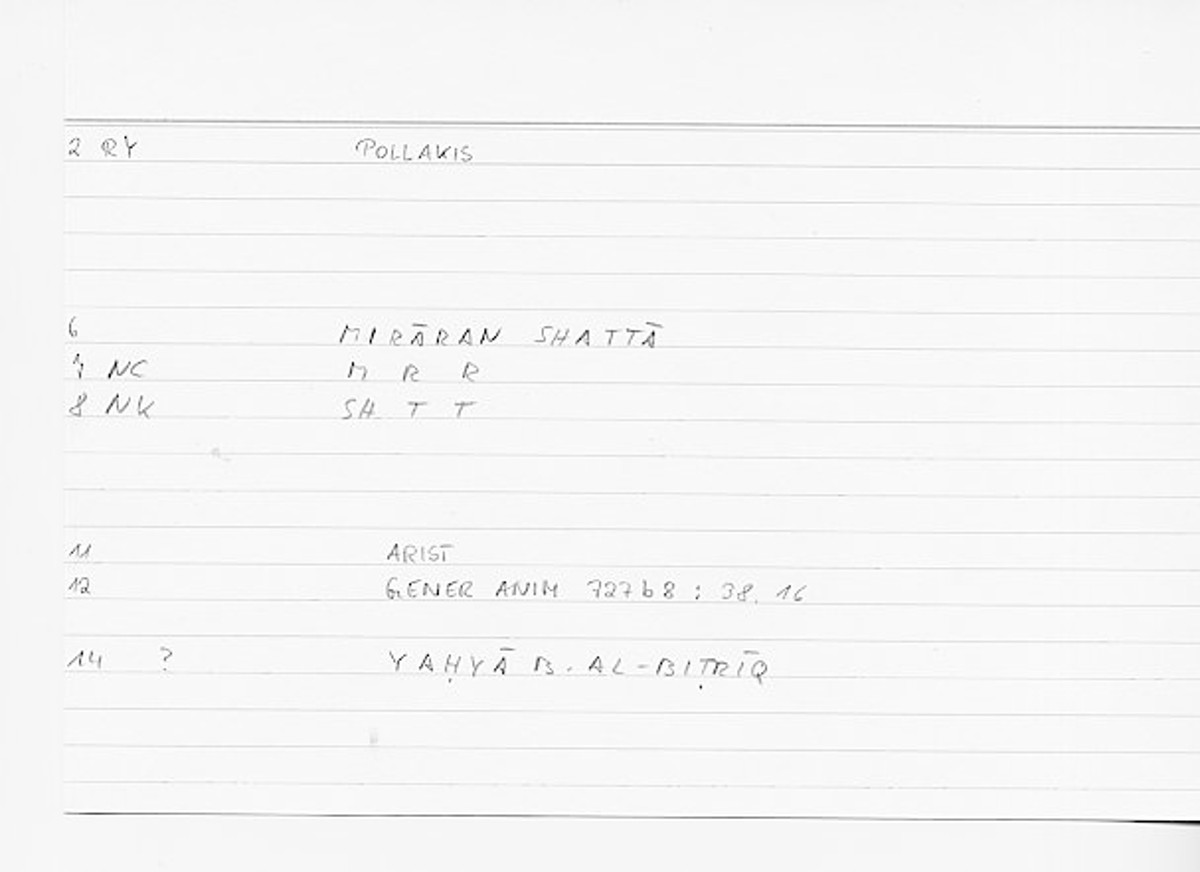 2 RY POLLAKIS
6 MIRĀRAN SHATTĀ
7 NC M R R
8 NK SH T T
11 ARIST
12 GENER ANIM 727b8 : 38. 16
14 ? YAḤYĀ B. AL-BIṬRĪQ